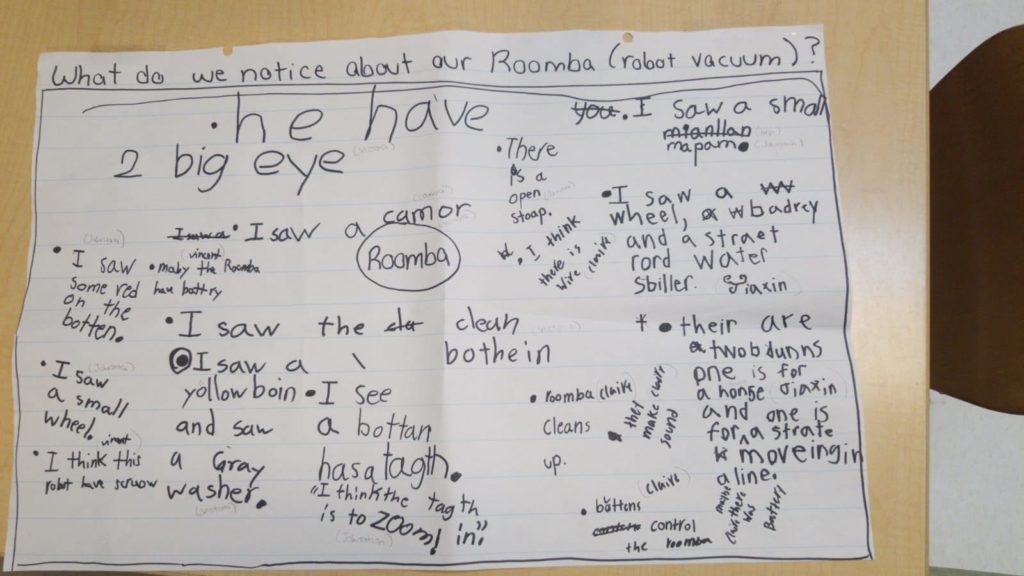 What do we notice about our Roomba (robot vacuum)?
• he have
2 big eye
you. I saw a small
mapam.
• There
is a
open
stoap.
• I saw a
wheel, a wbadrey
and a straet
rord water
sbiller. (Jiaxin)
• I think
there is
vire (claire)
• I saw a camor
Roomba
• I saw
some red
on the
botten.
(vincent)
• maby the Roomba
have battry
• I saw the clean
bothein
• I saw a
yollow boin
and saw
a Gray
washer.
• I saw
a small
wheel.
vincent
• I think this
robot have scruow
• I see
a bottan
has a tagth.
"I think the tagth
is to ZOom! in."
• roomba (claire)
cleans
up.
• they
make
sound
• their are
a two bdunns
one is for
a honge (Jiaxin)
and one is
for a strate
moveingin
a line.
• buttons (claire)
control
the roomba
maybe
there
was
battery